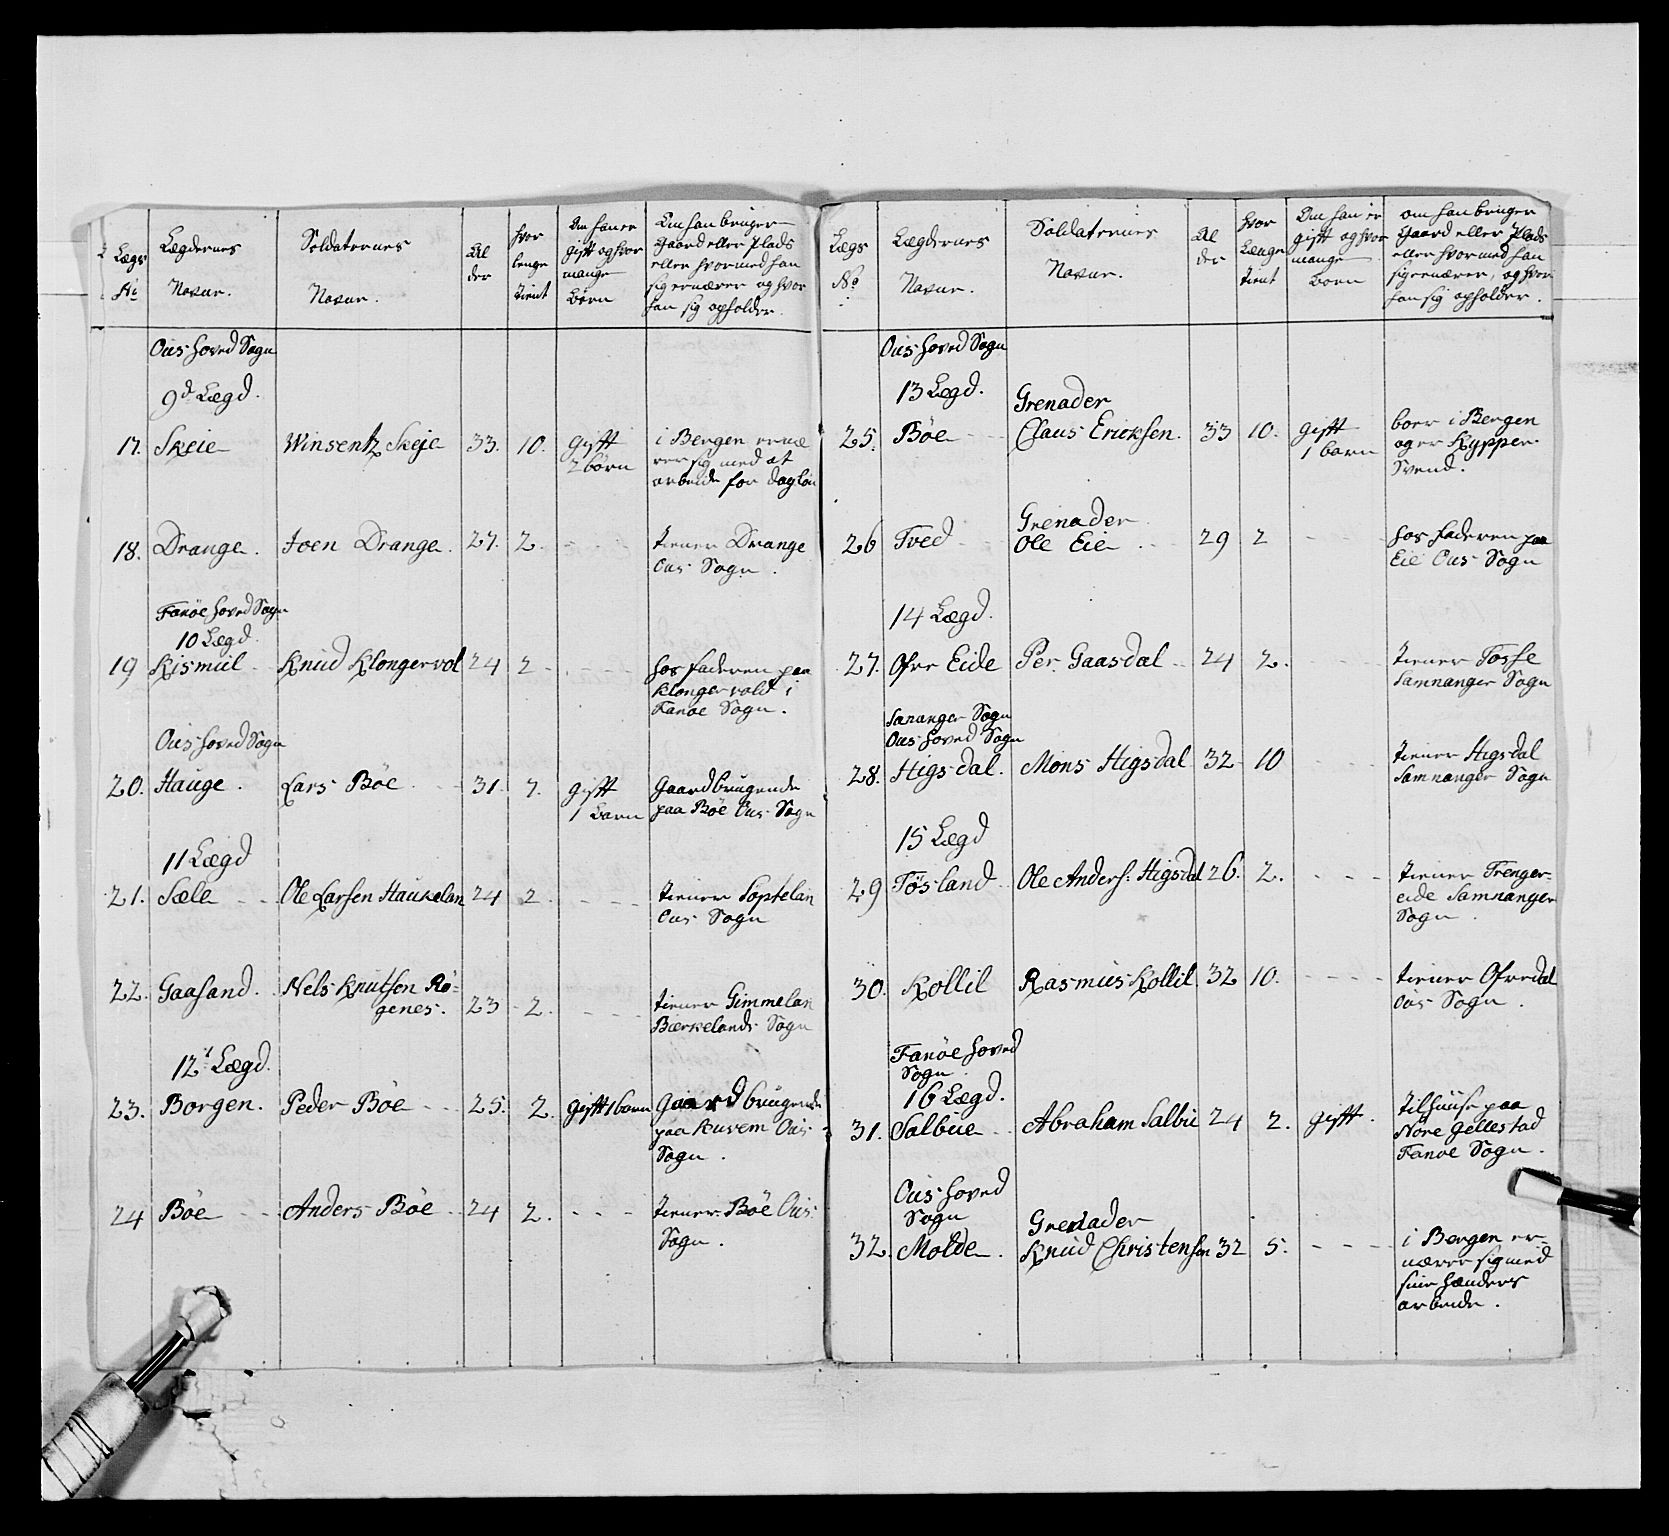 Lægs No
Lægdernes Navne.
Soldaternes Navne.
Alder
hvor længe tient
Om han er gift og hvor mange Børn
Om han bruger Gaard eller Plads eller hvormed han sig ernærer og hvor han sig opholder.
Ous hoved Sogn
9d Lægd.
17. Skeie Winsentz Skeje 33. 10. gift 2 børn i Bergen ernærer sig med at arbeide for dagløn
18. Drange. Joen Drange. 27. 2. - - - tiener Drange Ous Sogn.
Fanöe hoved Sogn
10 Lægd.
19 Kismul Knud Klongervol 24 2 - - - hos faderen paa Klongervold i Fanöe Sogn.
Ous hoved Sogn
20. Hauge. Lars Böe 31. 7. gift 1 Barn Gaardbrugende paa Böe Ous Sogn
11 Lægd
21. Sæle - - Ole Larsen Haukelan 24 2. - - - tiener Söptelan Ous Sogn
22. Gaasand. Nels Knutsen Rögenes. 23 2. - - - tiener Gimmelan Bærkelands Sogn
12t Lægd.
23. Borgen. Peder Böe - - 25. 2. gift 1 barn Gaardbrugende paa Kuvem Ous Sogn.
24 Böe - - Anders Böe 24 2. - - - tiener Böe Ous Sogn.
Lægs No
Lægdernes Navne.
Soldaternes Navne.
Alder
hvor Længe tient
Om han er gift og hvor mange born
om han bruger Gaard eller Plads eller hvormed han sig ernærer, og hvor han sig opholder.
Ous hoved Sogn
13 Lægd. Grenader
25. Böe - - Claus Ericksen. 33 10. gift 1 barn boer i Bergen og er Kypper Svend.
Grenader
26 Tved Ole Eie 29 2 - - - hos faderen paa Eie Ous Sogn
14 Lægd.
27. Ofre Eide Per Gaasdal 24 2. - - - tiener Tosse Samnanger Sogn
Sananger Sogn
Ous hoved Sogn
28. Higsdal. Mons Higsdal 32 10 - - - tiener Higsdal Samnanger Sogn
15 Lægd
29 Tösland Ole Anders: Higsdal 26. 2. - - - tiener Trengereide Samnanger Sogn.
30. Kollil Rasmus Kollil 32 10. - - - tiener Ofredal Ous Sogn.
Fanöe hoved Sogn
16 Lægd.
31. Salbue Abraham Salbu 24 2. gift. tilhuuse paa Nöre Gellestad Fanöe Sogn.
Ous hoved Sogn
Grenader
32. Molde. Knud Christensen 32 5. - - - i Bergen ernærer sig med sine hænders arbeide.